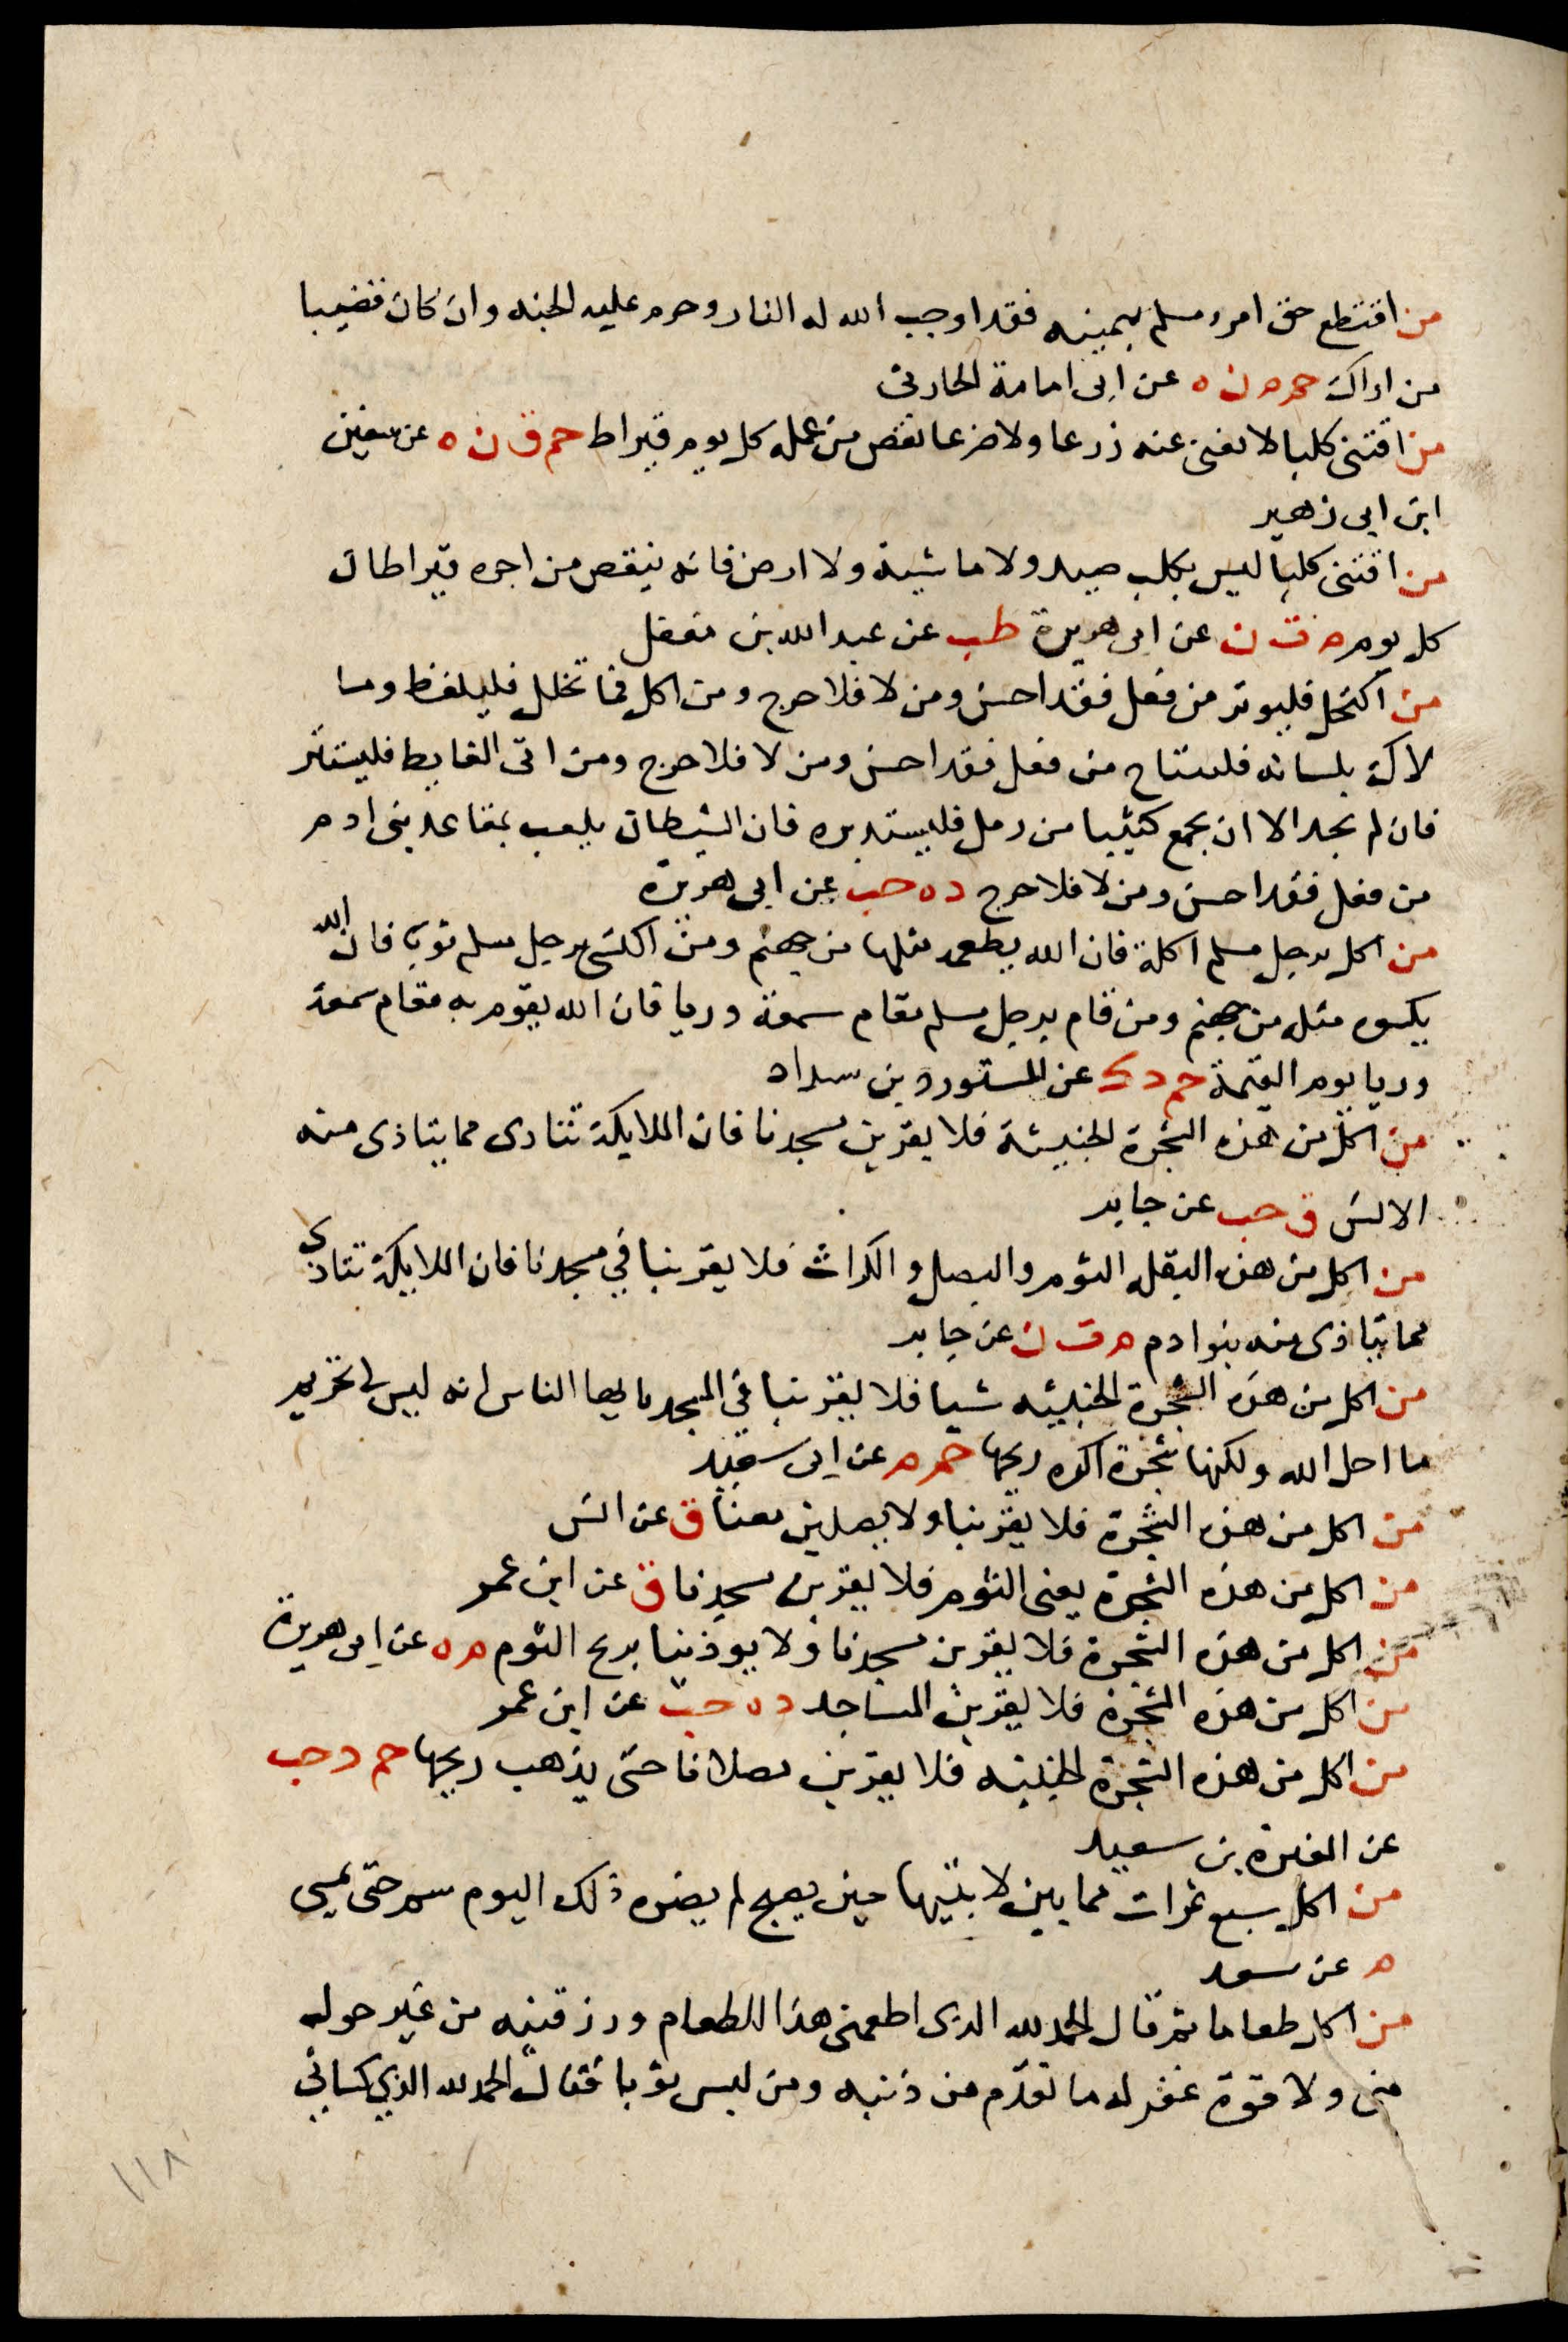 من اقتطع حق امرء مسلم بيمينه فقد اوجب الله له النار وحرم عليه الجنه وان كان قضيبا
من اراك حم م ن ه عن ابى امامة الحارثى
من اقتنى كلبا لا يغنى عنه زرعا ولا ضرعا نقص من عمله كل يوم قيراط حم ق ن ه عن سفين
ابن ابى زهير
من اقتنى كلبا ليس بكلب صيد ولا ماشية ولا ارض فانه ينقص من اجره قيراطان
كل يوم م ت ن عن ابى هريرة طب عن عبد الله بن مغفل
من اكتحل فليوتر من فعل فقد احسن ومن لا فلا حرج ومن اكل فما تخلل فليلفظ وما
لاك بلسانه فليبتلع من فعل فقد احسن ومن لا فلا حرج ومن اتى الغايط فليستتر
فان لم يجد الا ان يجمع كثيبا من رمل فليستدبره فان الشيطان يلعب بمقاعد بنى ادم
من فعل فقد احسن ومن لا فلا حرج د ه حب عن ابى هريرة
من اكل برجل مسلم اكلة فان الله يطعمه مثلها من جهنم ومن اكتسى برجل مسلم ثوبا فان الله
يكسوه مثله من جهنم ومن قام برجل مسلم مقام سمعة وريا فان الله يقوم به مقام سمعة
وريا يوم القيمة حم د ك عن المستورد بن سداد
من اكل من هذه الشجرة الخبيثة فلا يقربن مسجدنا فان الملايكة تتاذى مما يتاذى منه
الانس ق حب عن جابر
من اكل من هذه البقله الثوم والبصل والكراث فلا يقربنا في مسجدنا فان الملايكة تتاذى
مما يتاذى منه بنو ادم م ت ن عن جابر
من اكل من هذه الشجرة الخبيثه شيا فلا يقربنا في المسجد يا ايها الناس انه ليس لى تحريم
ما احل الله ولكنها شجرة اكره ريحها حم م عن ابى سعيد
من اكل من هذه الشجرة فلا يقربنا ولا يصلين معنا ق عن انس
من اكل من هذه الشجرة يعنى الثوم فلا يقربن مسجدنا ق عن ابن عمر
من اكل من هذه الشجرة فلا يقربن مسجدنا ولا يوذينا بريح الثوم م ه عن ابى هريرة
من اكل من هذه الشجرة فلا يقربن المساجد د ه حب عن ابن عمر
من اكل من هذه الشجرة الخبيثه فلا يقربن مصلانا حتى يذهب ريحها حم د حب
عن المغيرة بن سعيد
من اكل سبع تمرات مما بين لابتيها حين يصبح لم يضره ذلك اليوم سم حتى يمسي
م عن سعد
من اكل طعاما ثم قال الحمد لله الذى اطعمنى هذا الطعام ورزقنيه من غير حول
منى ولا قوة غفر له ما تقدم من ذنبه ومن لبس ثوبا فقال الحمد لله الذي كساني
١١٨